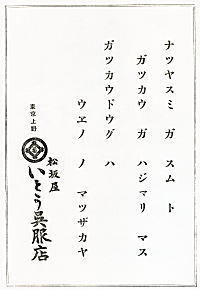 ナツヤスミ ガ スム ト
ガツカウ ガ ハジマリ マス
ガツカウドウグ ハ
ウヱノ ノ マツザカヤ
東京上野
松坂屋
いとう呉服店